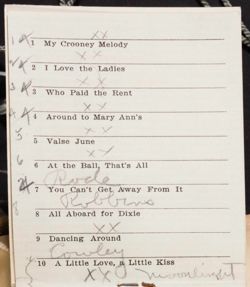 xx
1 1 My Crooney Melody
xx
2 2 I Love the Ladies
xx
3 3 Who Paid the Rent
xx
4 4 Around to Mary Ann's
xx
5 5 Valse June
xx
6 6 At the Ball, That's All
Rode
7 You Can't Get Away From It
Robbins
8 8 All Aboard for Dixie
9 Dancing Around
Cowley
10 A Little Love, a Little Kiss
xx moonlight